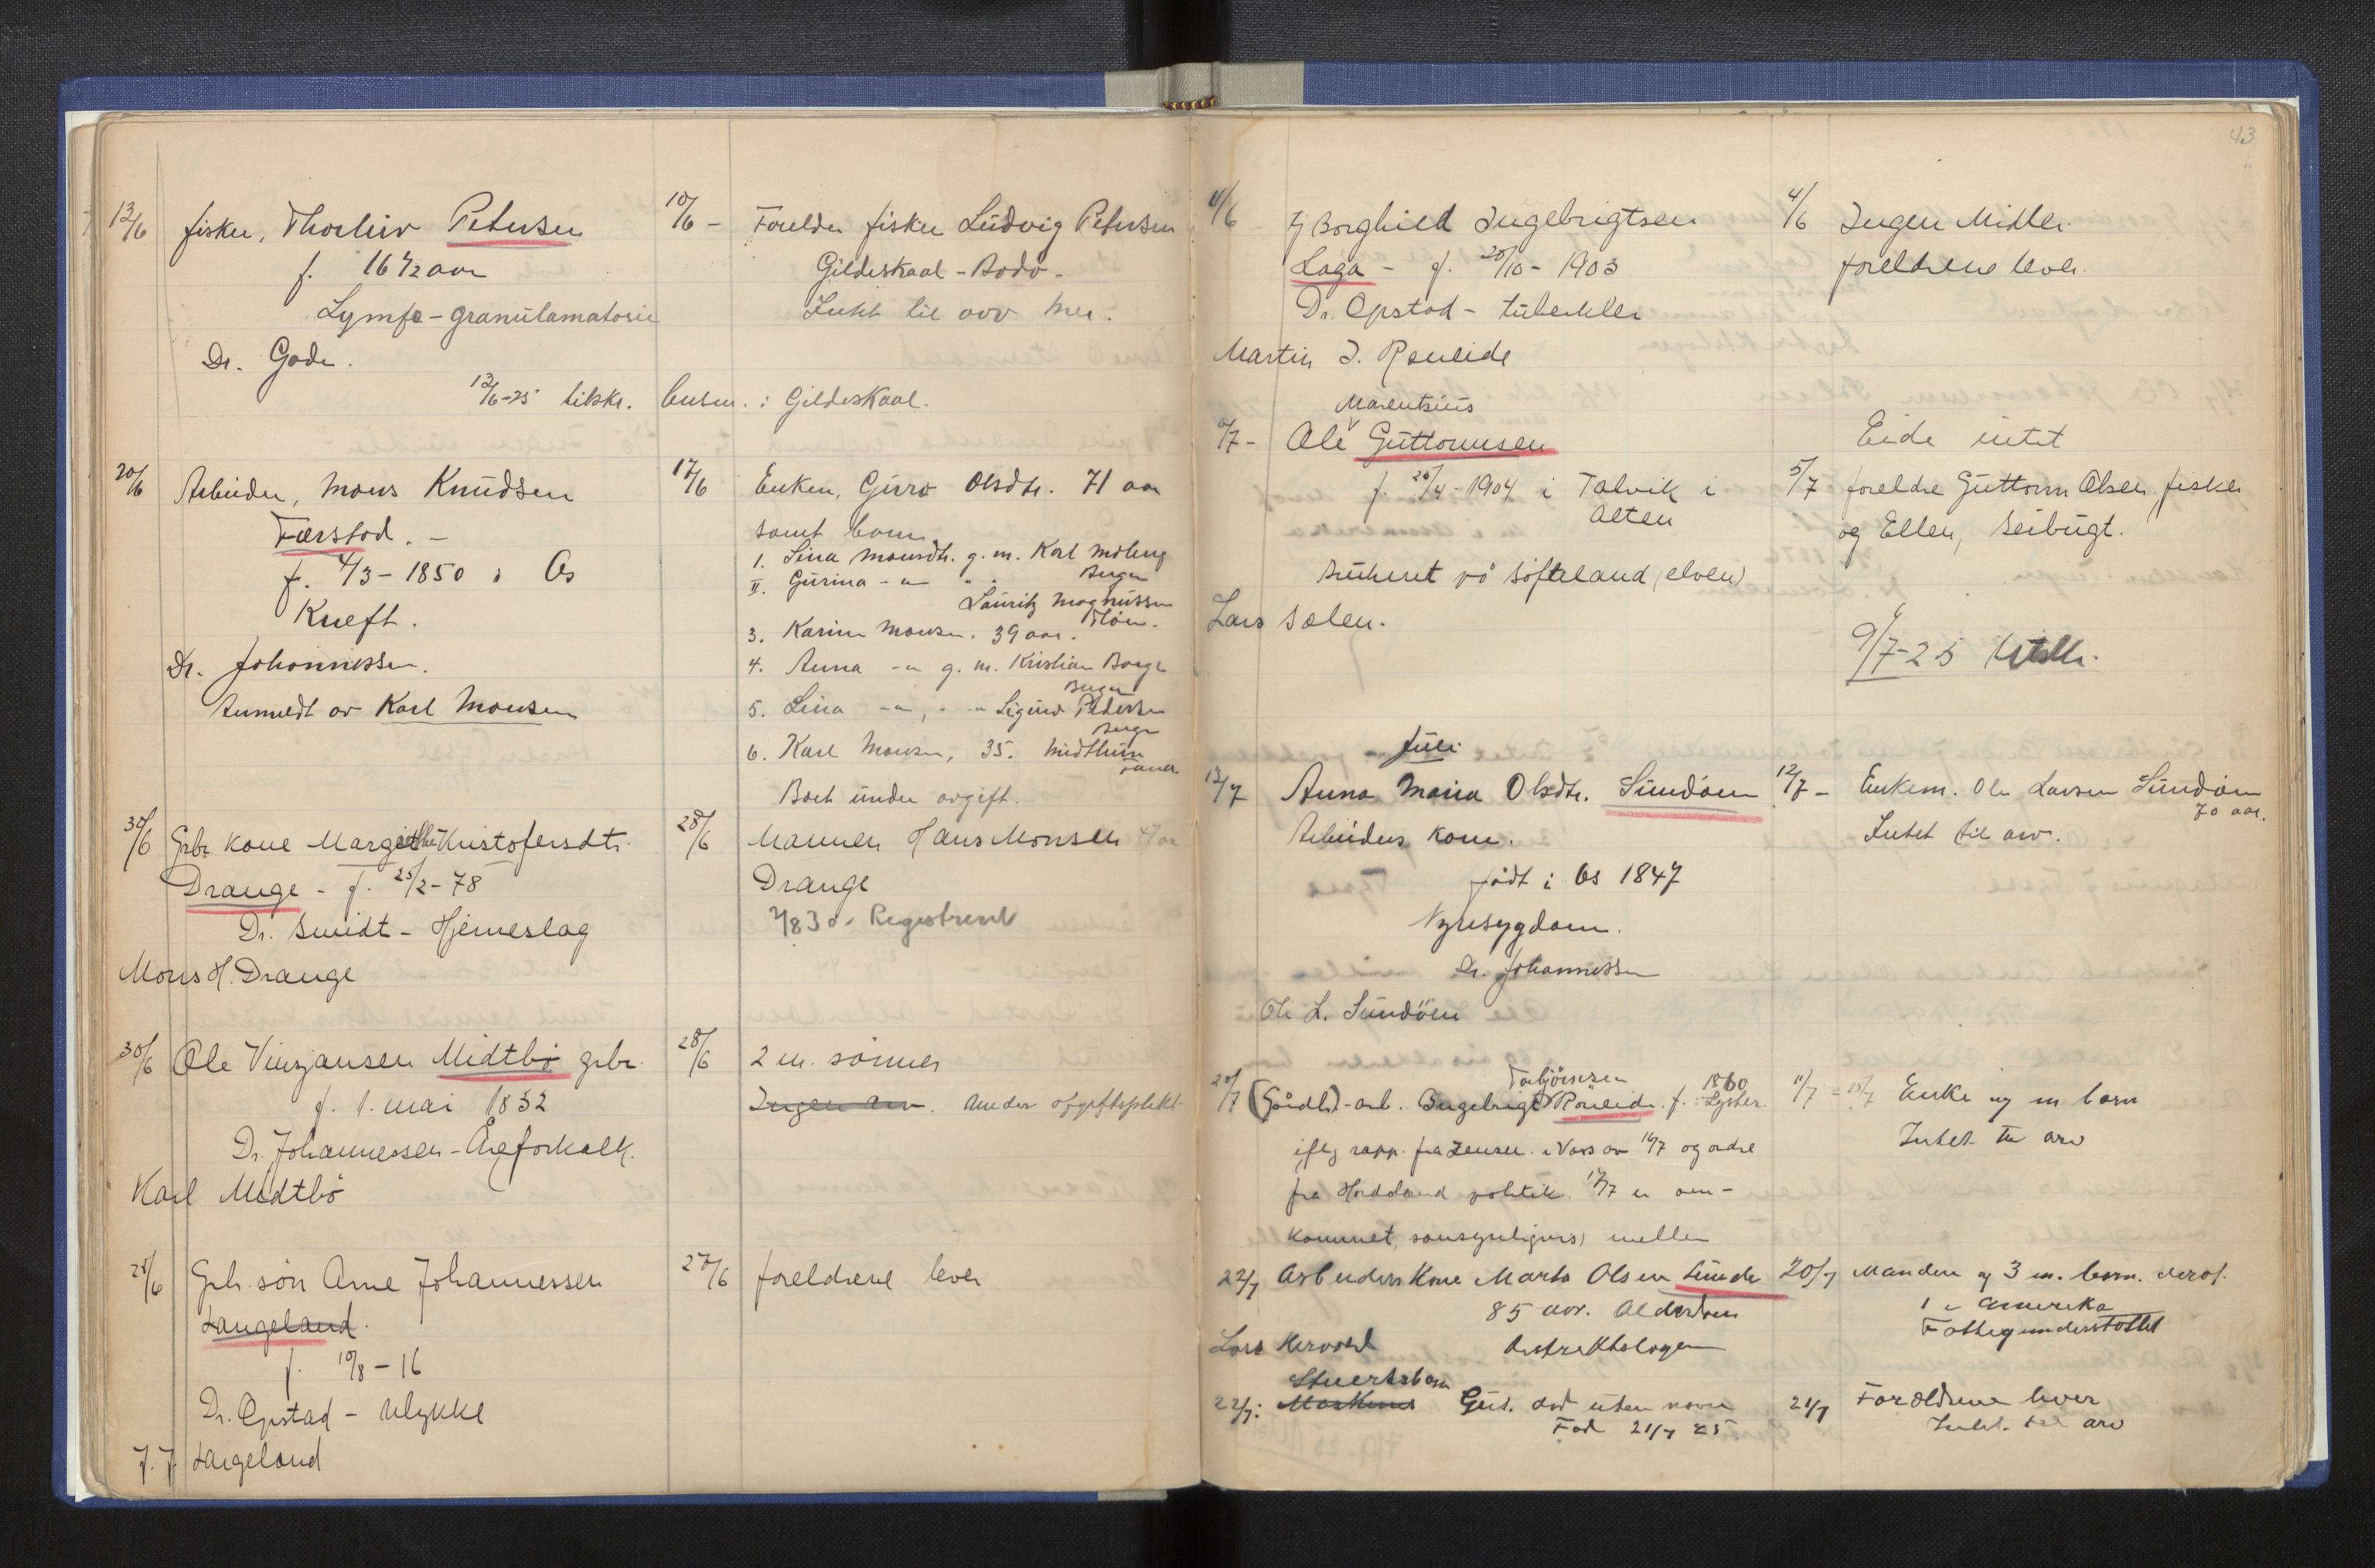 12/6 fisker, Thorleiv Petersen 10/6 - Forelder fisker Ludvig Petersen
f. 16 1/2 aar Gildeskaal - Bodø.
Lymfo-granulamatosis Intet til arv
Dr. Gade.
12/6-25 tilskr. lensm. i Gildeskaal.
20/6 Arbeider, Mons Knudsen 17/6 Enken, Guro Olsdtr. 71 aar
Færstad. - samt barn
f. 4/3-1850 i Os 1. Lina Monsdtr. g. m. Karl Moberg
Bergen
Kreft. II. Gurina -"- " " Lauritz Magnussen
3. Karina Monsen. 39 aar.
Dr. Johannessen. 4. Anna -"- g. m. Kristian Borge
Bergen
Anmeldt av Karl Monsen 5. Lina -"- " " Sigurd Pedersen
Bergen
6. Karl Monsen, 35. Midttun
Fana.
Boet under avgift.
30/6 Grbr kone Margrethe Kristofersdtr. 28/6 Mannen Hans Monsen
Drange - f. 25/2-78 Drange
Dr. Smidt - Hjerneslag Registrert
Mons H. Drange
30/6 Ole Vinzjansen Midtbø grbr. 28/6 2 m. sønner
f. 1. mai 1832 Ingen arv. Under avgiftsplikt
Dr. Johannessen - Åreforkalk.
Karl Midtbø
28/6 Grb. søn Arne Johannessen 27/6 foreldrene lever
Langeland.
f. 10/8-16
Dr. Opstad - Ulykke
J. J. Langeland
43
11/6 Borghild Ingebrigtsen 4/6 Ingen Midler.
Haga - f. 20/10-1903 foreldrene lever.
Dr. Opstad - tuberkler
Martin I. Røneide
Marentsius
7/7 - Ole Guttormsen Eide intet
f. 20/4-1904 i Talvik i 5/7 foreldre Guttorm Olsen fisker
Alten og Ellen, Seibugt.
Druknet på Søfteland (elven)
Lars Sælen.
9/7-25
Juli
13/7 Anna Maria Olsdtr. Sundøen 12/7 - Enkem. Ole Larsen Sundøen
70 aar.
Arbeiders kone. Intet til arv.
født i Os 1847
Nyresygdom.
Dr. Johannessen
Ole L. Sundöen
Torbjörnsen 1860
20/7 arb. Ingebrigt Röneide. f. i Lyster. 11/7 - 15/7 Enke og m barn
iflg rapp. fra Lensm. i Voss av 16/7 og ordre Intet til arv
fra Hordaland politik. 17/7 er om-
kommet, sansynligvis mellem
22/7 Arbeiders Kone Marta Olsen Lunde 20/7 Manden og 3 m. barn. derof.
85 aar. Alderdom 1 i Amerika
Fattigunderstøttet
Lars Distriktslægen
Stuertsbarn
22/7: Gut. død uten navn 21/7 Forældrene lever
Fød 21/7 25 Intet til arv